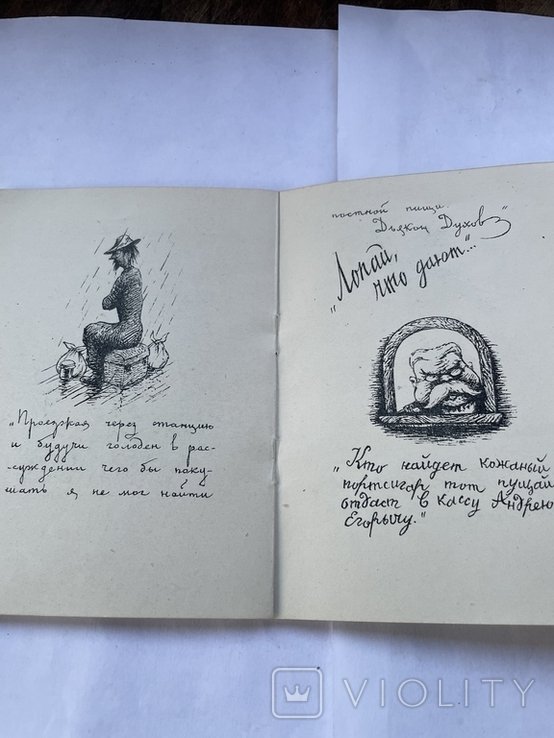 „Проезжая через станцию
и будучи голоден в рас-
суждении чего бы поку-
шать я не мог найти
постной пищи.
Дьякон Духов"
„Лопай,
что дают..."
„Кто найдет кожаный
портсигар тот пущай
отдаст в кассу Андрею
Егорычу."
VIOLITY